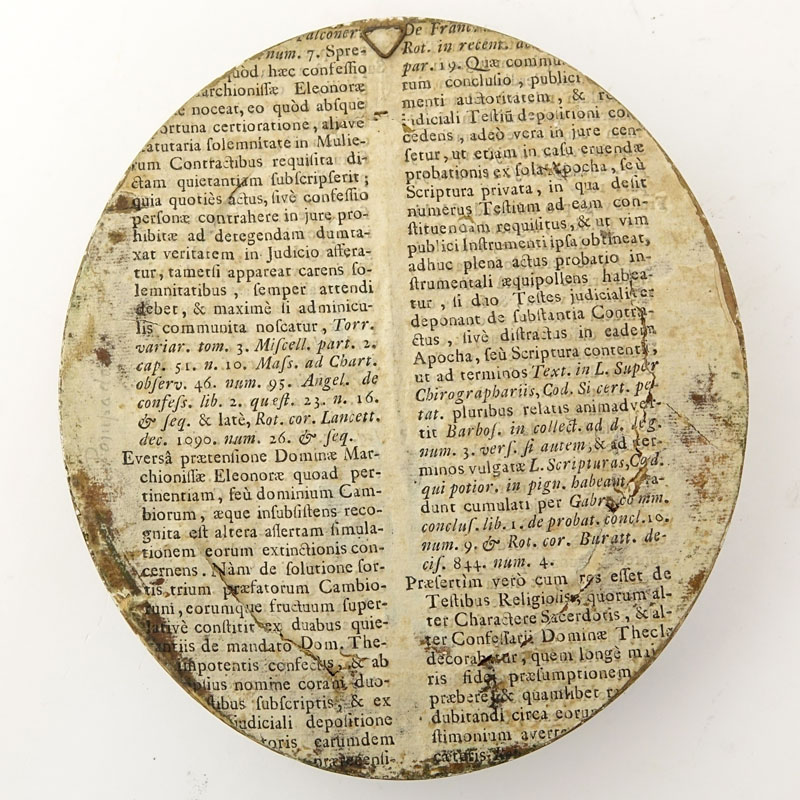 alconer.
num. 7. Spre-
quòd hæc confessio
archionissæ Eleonoræ
noceat, eo quòd absque
ortuna certioratione, aliave
tatutaria solemnitate in Mulie-
rum Contractibus requisita di-
ctam quietantiam subscripserit;
quia quotiès actus, sivè confessio
personæ contrahere in jure pro-
hibitæ ad detegendam dumta-
xat veritatem in Judicio affera-
tur, tametsi appareat carens so-
lemnitatibus, semper attendi
debet, & maximè si adminicu-
lis communita noscatur, Torr.
variar. tom. 3. Miscell. part. 2.
cap. 51. n. 10. Mass. ad Chart.
observ. 46. num. 95. Angel. de
confess. lib. 2. quæst. 23. n. 16.
& seq. & latè, Rot. cor. Lancett.
dec. 1090. num. 26. & seq.
Eversâ prætensione Dominæ Mar-
chionissæ Eleonoræ quoad per-
tinentiam, seù dominium Cam-
biorum, æque insubsistens reco-
gnita est altera assertam simula-
tionem eorum extinctionis con-
cernens. Nàm de solutione sor-
tis trium præfatorum Cambio-
eorumque fructuum super-
constitit ex duabus quie-
de mandato Dom. The-
impotentis confectis, & ab
nomine coram duo-
subscriptis, & ex
judiciali depositione
earumdem
De Franc
Rot. in recent.
par. 19. Quæ commu
rum conclusio, publici
menti auctoritatem, & re
judiciali Testiũ depositioni co
cedens, adeò vera in jure cen-
setur, ut etiam in casu eruendæ
probationis ex sola Apocha, seù
Scriptura privata, in qua desit
numerus Testium ad eam con-
stituendam requisitus, & ut vim
publici Instrumenti ipsa obtineat,
adhuc plena actus probatio in-
strumentali æquipollens habea-
tur, si duo Testes judicialiter
deponant de substantia Contra-
ctus, sivè distractus in eadem
Apocha, seù Scriptura contenti,
ut ad terminos Text. in L. Super
Chirographariis, Cod. Si cert. pe-
tat. pluribus relatis animadver-
tit Barbos. in collect. ad d. leg.
num. 3. vers. si autem, & ad ter-
minos vulgatæ L. Scripturas, Cod.
qui potior. in pign. habeant, tra-
dunt cumulati per Gabr. comm.
conclus. lib. 1. de probat. concl. 10.
num. 9. & Rot. cor. Buratt. de-
cis. 844. num. 4.
Præsertìm verò cum res esset de
Testibus Religiosis, quorum al-
ter Charactere Sacerdotis, & al-
ter Confessarii Dominæ Theclæ
decorabatur, quem longè
ris fidei præsumptionem
præbere, & quamlibet
dubitandi circa eorum
stimonium averte
cæteris